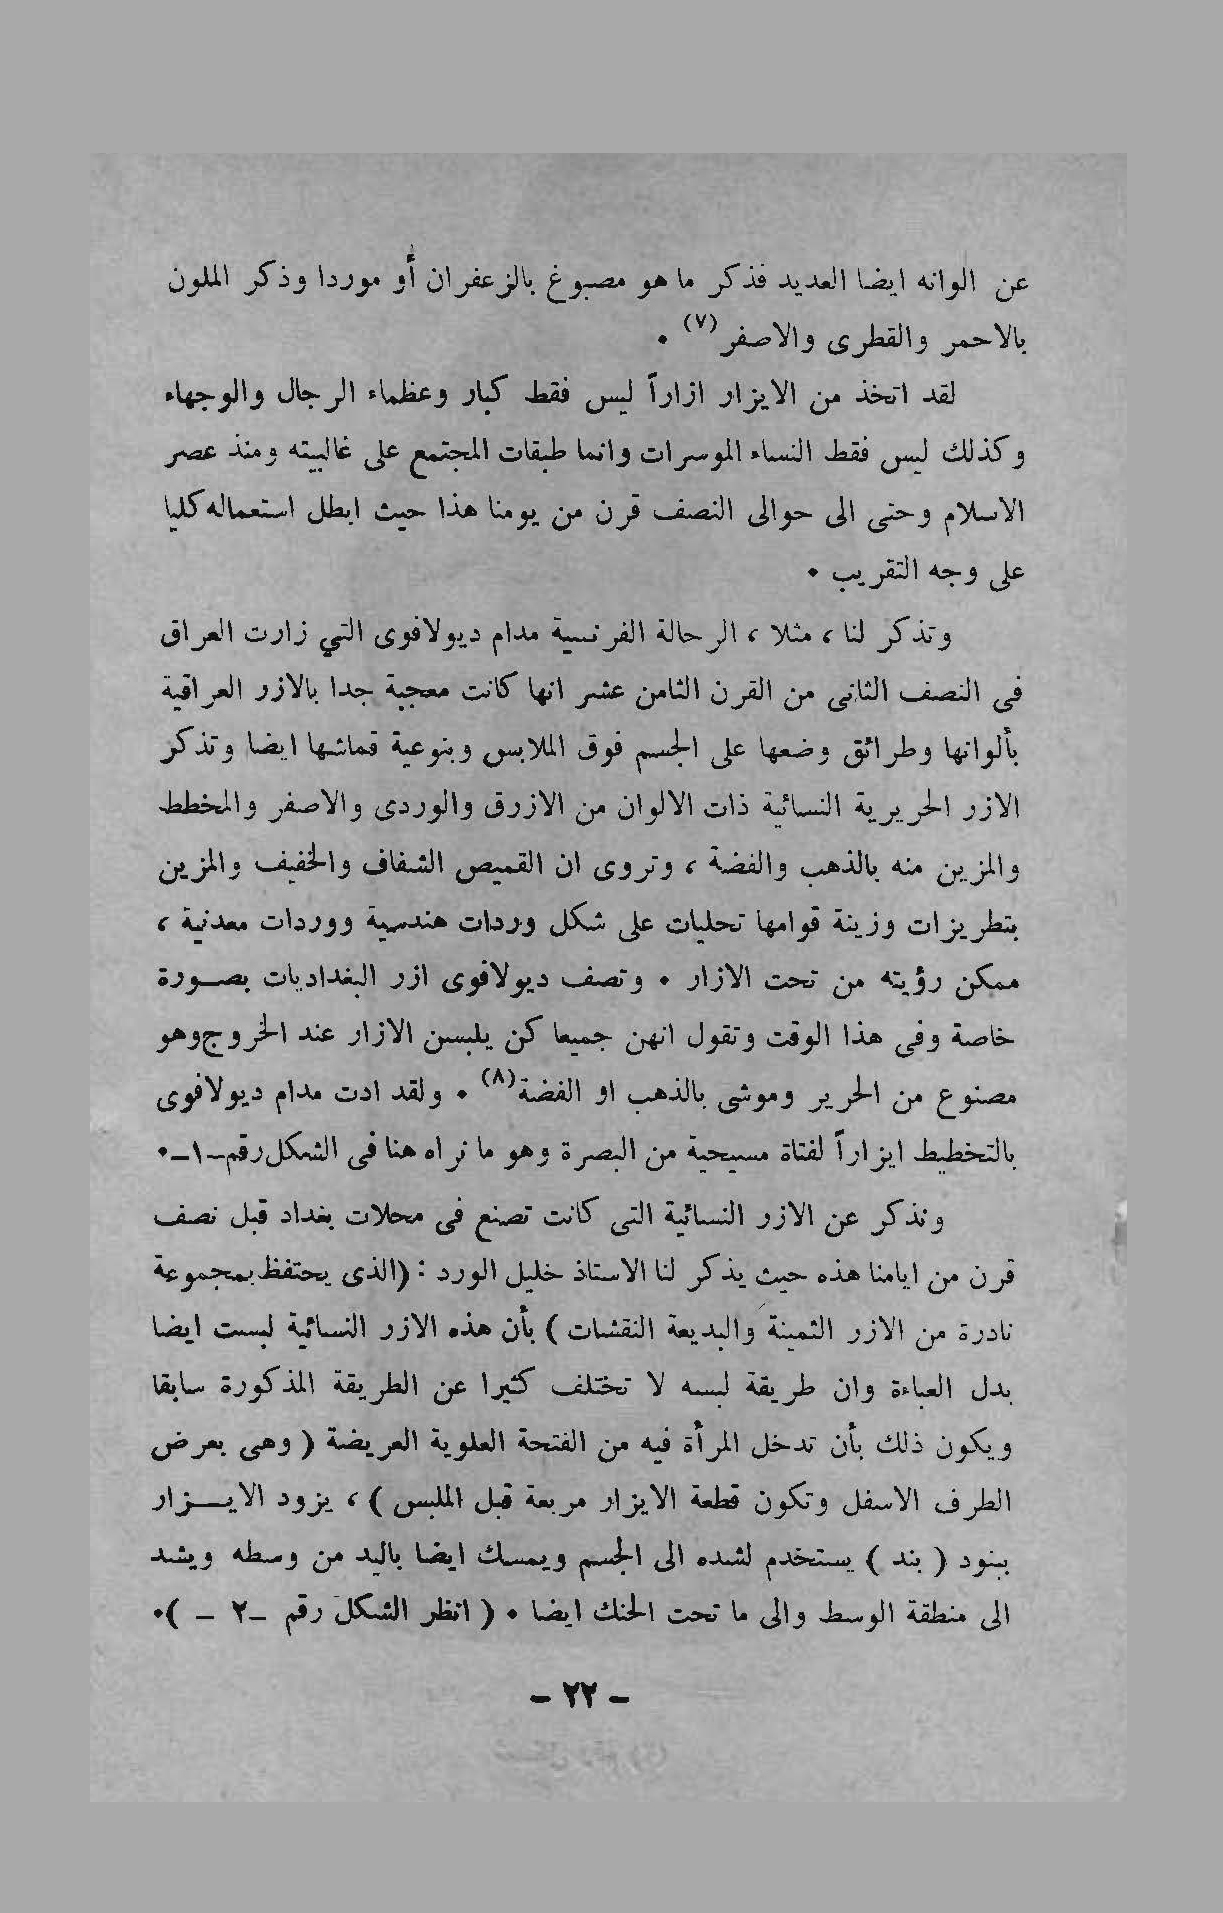 عن الوانه ايضا العديد فذكر ما هو مصبوغ بالزعفران أو موردا وذكر الملون
بالاحمر والقطرى والاصفر(٧) ٠
لقد اتخذ من الايزار ازاراً ليس فقط كبار وعظماء الرجال والوجهاء
وكذلك ليس فقط النساء الموسرات وانما طبقات المجتمع على غالبيته ومنذ عصر
الاسلام وحتى الى حوالى النصف قرن من يومنا هذا حيث ابطل استعماله كليا
على وجه التقريب ٠
وتذكر لنا ، مثلا ، الرحالة الفرنسية مدام ديولافوى التي زارت العراق
فى النصف الثانى من القرن الثامن عشر انها كانت معجبة جدا بالازر العراقية
بألوانها وطرائق وضعها على الجسم فوق الملابس وبنوعية قماشها ايضا وتذكر
الازر الحريرية النسائية ذات الالوان من الازرق والوردى والاصفر والمخطط
والمزين منه بالذهب والفضة ، وتروى ان القميص الشفاف والخفيف والمزين
بتطريزات وزينة قوامها تحليات على شكل وردات هندسية ووردات معدنية ،
ممكن رؤيته من تحت الازار ٠ وتصف ديولافوى ازر البغداديات بصـورة
خاصة وفى هذا الوقت وتقول انهن جميعا كن يلبسن الازار عند الخروج وهو
مصنوع من الحرير وموشى بالذهب او الفضة(٨) ٠ ولقد ادت مدام ديولافوى
بالتخطيط ايزاراً لفتاة مسيحية من البصرة وهو ما نراه هنا فى الشكل رقم -١-٠
ونذكر عن الازر النسائية التى كانت تصنع فى محلات بغداد قبل نصف
قرن من ايامنا هذه حيث يذكر لنا الاستاذ خليل الورد : (الذى يحتفظ بمجموعة
نادرة من الازر الثمينة والبديعة النقشات ) بأن هذه الازر النسائية لبست ايضا
بدل العباءة وان طريقة لبسه لا تختلف كثيرا عن الطريقة المذكورة سابقا
ويكون ذلك بأن تدخل المرأة فيه من الفتحة العلوية العريضة ( وهى بعرض
الطرف الاسفل وتكون قطعة الايزار مربعة قبل الملبس ) ، يزود الايـــزار
ببنود ( بند ) يستخدم لشده الى الجسم ويمسك ايضا باليد من وسطه ويشد
الى منطقة الوسط والى ما تحت الحنك ايضا ٠ ( انظر الشكل رقم -٢ - )٠
- ٢٢ -